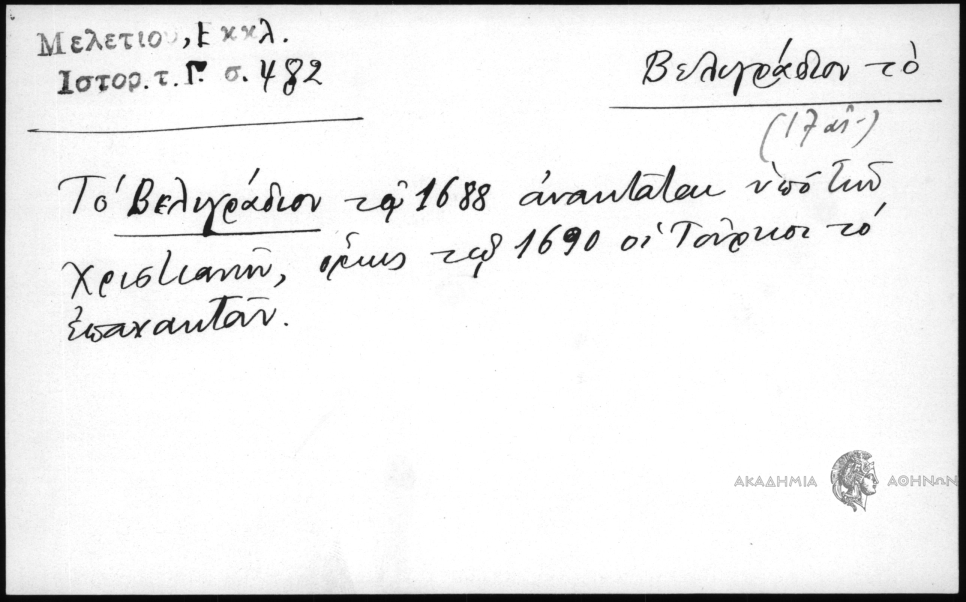 Μελετίου, Εκκλ.
Ιστορ. τ. Γ. σ. 482
Βελιγράδιον τὸ
(17 αἰ.)
Τὸ Βελιγράδιον τῷ 1688 ἀνακτᾶται ὑπὸ τῶν
Χριστιανῶν, ὅμως τῷ 1690 οἱ Τοῦρκοι τὸ
ἐπανακτοῦν.
ΑΚΑΔΗΜΙΑ ΑΘΗΝΩΝ